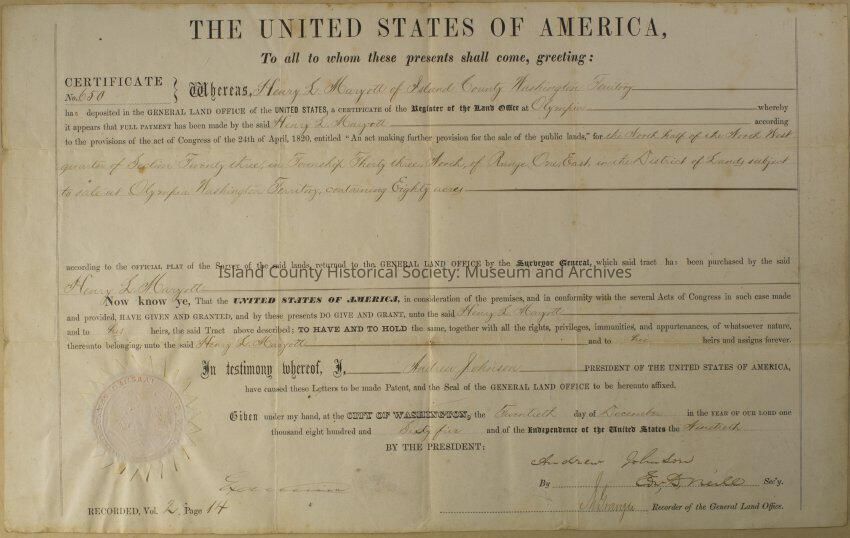 THE UNITED STATES OF AMERICA,
To all to whom these presents shall come, greeting:
CERTIFICATE
No. 650
Whereas, Henry L. Maryott of Island County Washington Territory
has deposited in the GENERAL LAND OFFICE of the UNITED STATES, a CERTIFICATE OF THE Register of the Land Office at Olympia whereby
it appears that FULL PAYMENT has been made by the said Henry L. Maryott according
to the provisions of the act of Congress of the 24th of April, 1820, entitled "An act making further provision for the sale of the public lands," for the North half of the North West
quarter of Section Twenty three, in Township Thirty three, North, of Range One, East, in the District of Lands subject
to sale at Olympia Washington Territory, containing Eighty acres
according to the OFFICIAL PLAT of the Survey of the said lands, returned to the GENERAL LAND OFFICE by the Surveyor General, which said tract has been purchased by the said
Island County Historical Society: Museum and Archives
Henry L. Maryott
Now know ye, That the UNITED STATES OF AMERICA, in consideration of the premises, and in conformity with the several Acts of Congress in such case made
and provided, HAVE GIVEN AND GRANTED, and by these presents DO GIVE AND GRANT, unto the said Henry L. Maryott
and to his heirs, the said Tract above described; TO HAVE AND TO HOLD the same, together with all the rights, privileges, immunities, and appurtenances, of whatsoever nature,
thereunto belonging, unto the said Henry L. Maryott and to his heirs and assigns forever.
In testimony whereof, I, Andrew Johnson PRESIDENT OF THE UNITED STATES OF AMERICA,
have caused these Letters to be made Patent, and the Seal of the GENERAL LAND OFFICE to be hereunto affixed.
Given under my hand, at the CITY OF WASHINGTON, the Twentieth day of December in the YEAR OF OUR LORD one
thousand eight hundred and Sixty five and of the Independence of the United States the Ninetieth
BY THE PRESIDENT:
Andrew Johnson
By Edw. D. Neill Sec'y.
Recorder of the General Land Office.
RECORDED, Vol. 2, Page 14